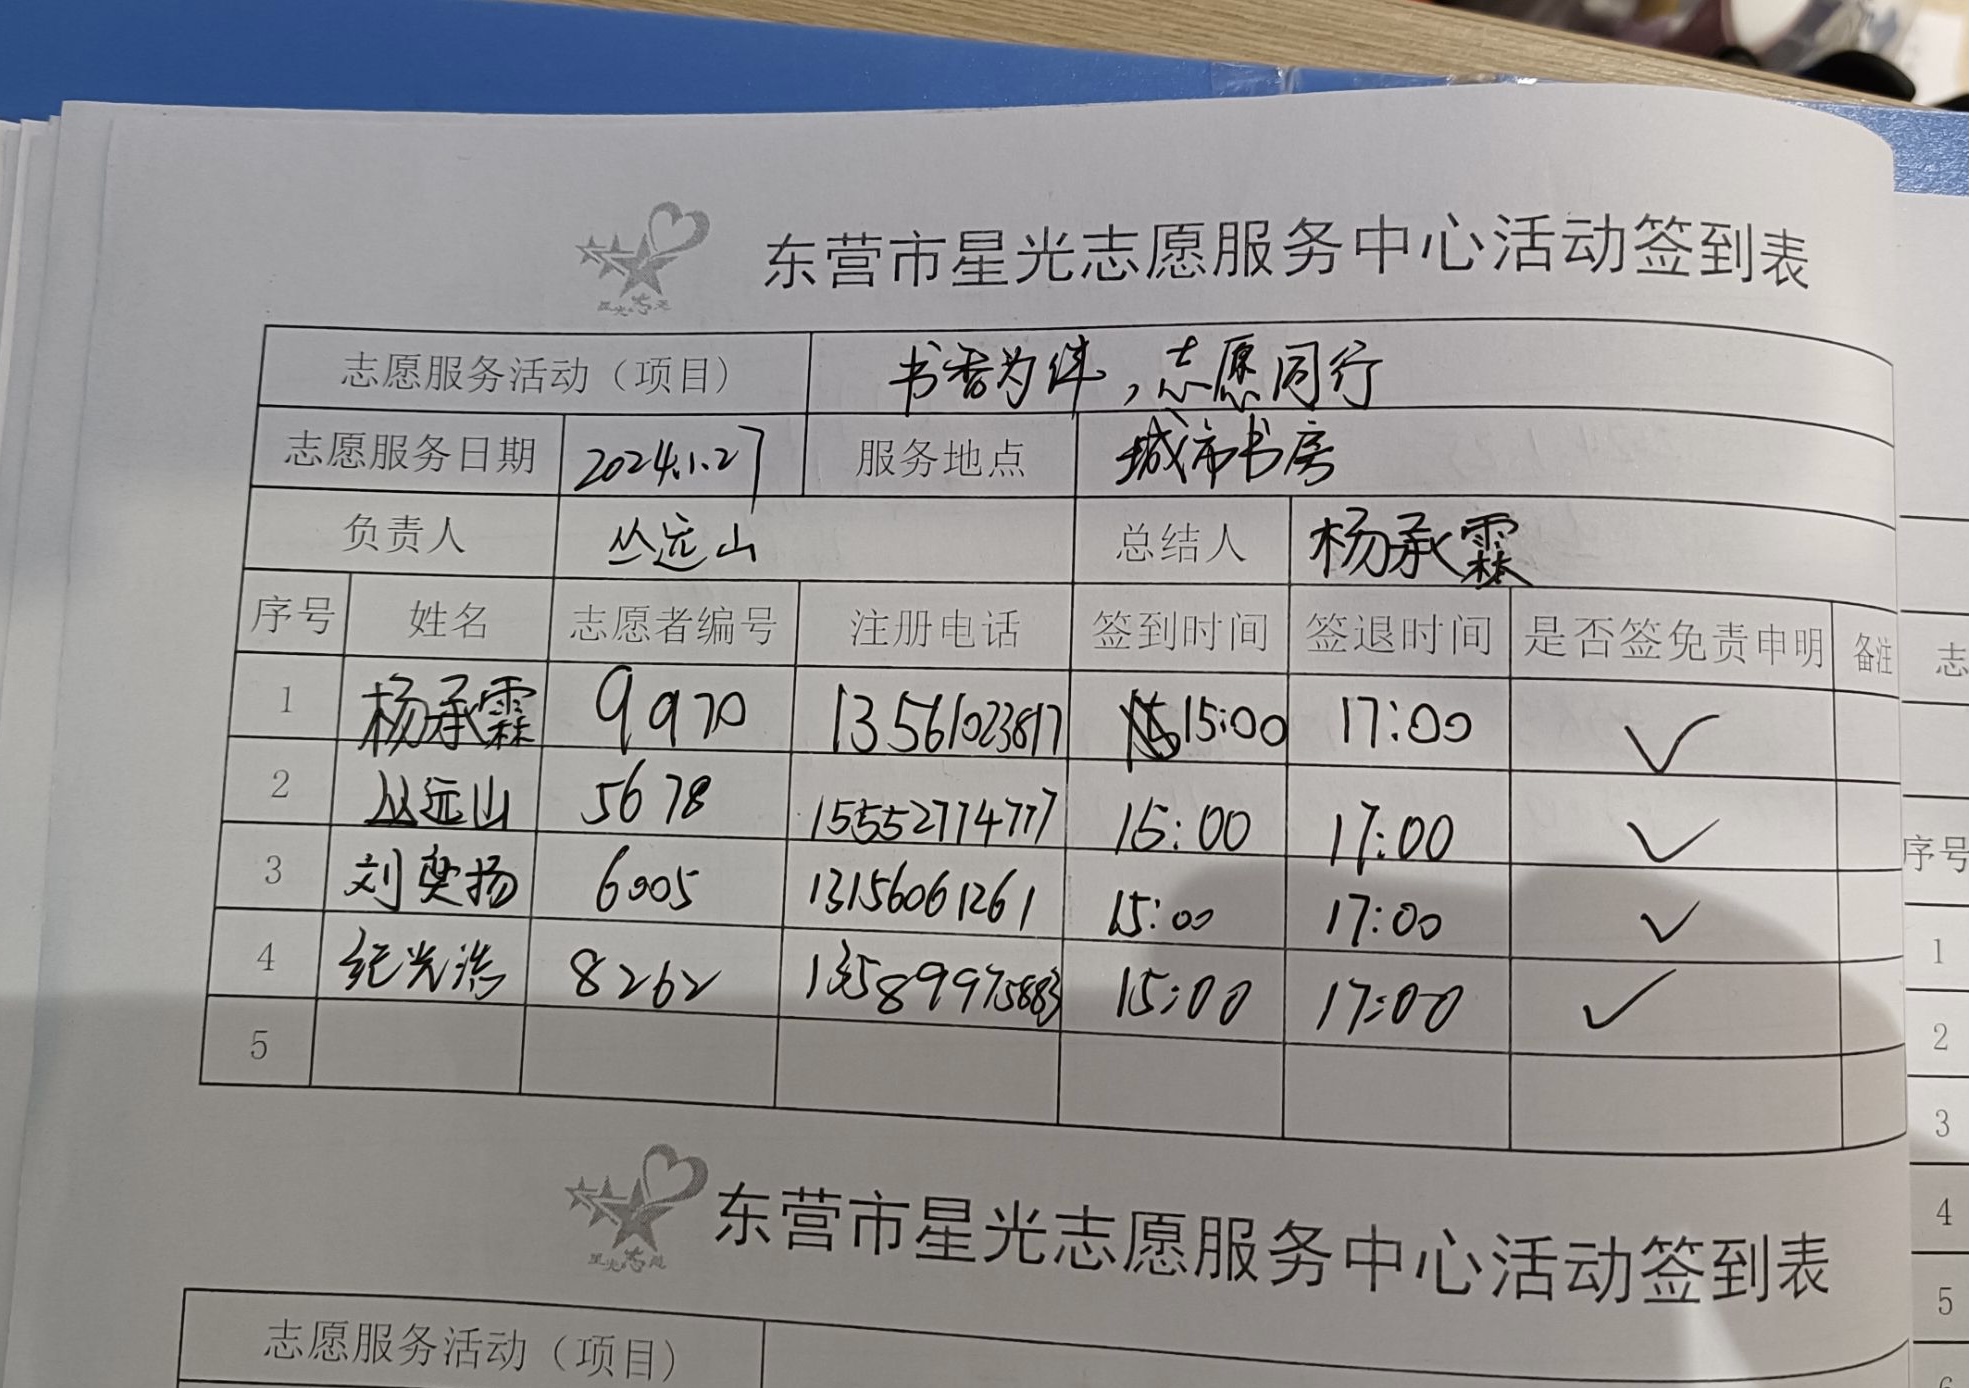 东营市星光志愿服务中心活动签到表
志愿服务活动（项目） 书香为伴，志愿同行
志愿服务日期 2024.1.27 服务地点 城市书房
负责人 丛远山 总结人 杨承霖
序号 姓名 志愿者编号 注册电话 签到时间 签退时间 是否签免责申明 备注
1 杨承霖 9970 13561023817 15:00 17:00 ✓
2 丛远山 5678 15552774777 15:00 17:00 ✓
3 刘奕扬 6005 13156061261 15:00 17:00 ✓
4 纪光浩 8262 13589975883 15:00 17:00 ✓
5
东营市星光志愿服务中心活动签到表
志愿服务活动（项目）
志
序号
1
2
3
4
5
6